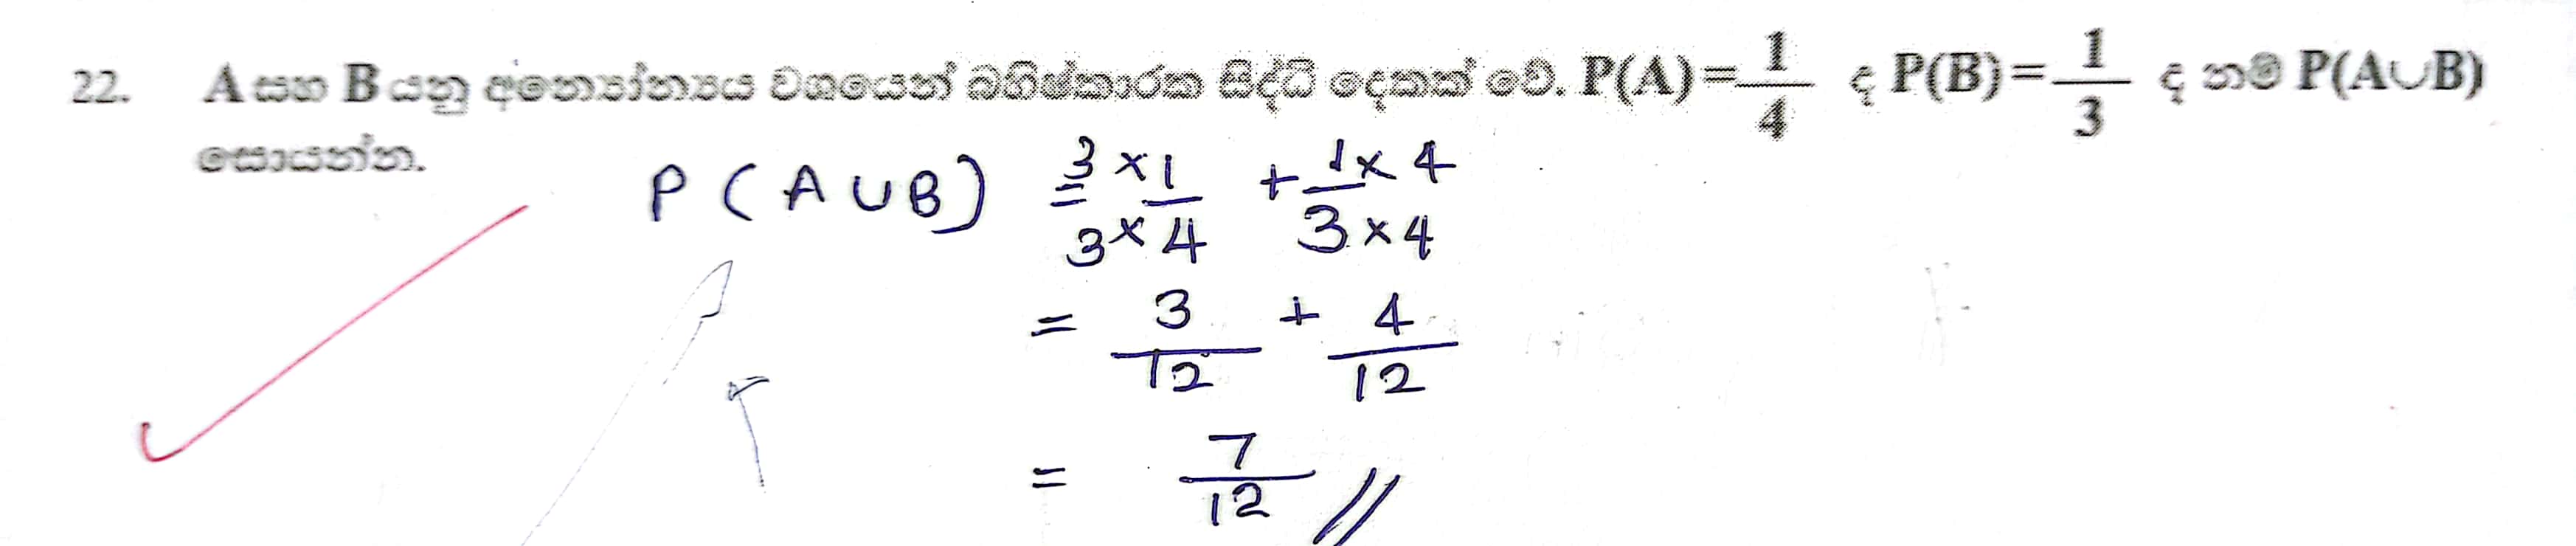 22. A සහ B යනු අන්‍යෝන්‍යය වශයෙන් බහිෂ්කාරක සිද්ධි දෙකක් වේ. P(A)=1/4 ද P(B)=1/3 ද නම් P(A∪B)
සොයන්න.
P (A ∪ B) = 3 × 1 / 3 × 4 + 1 × 4 / 3 × 4
= 3/12 + 4/12
= 7/12 //